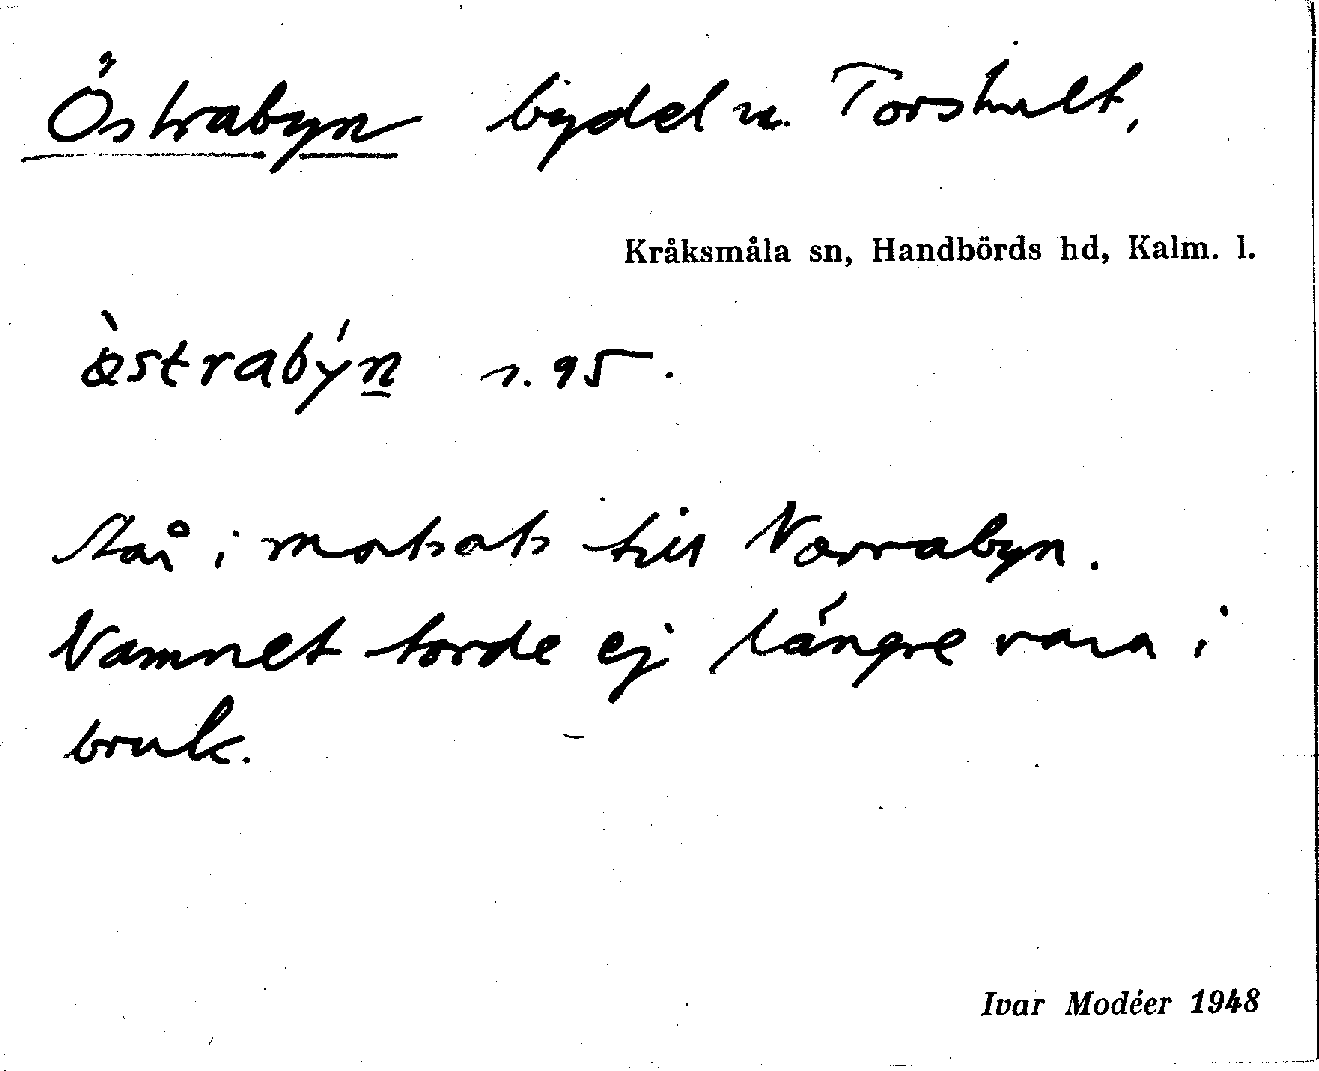 Östrabyn bydel u. Torshult,
Kråksmåla sn, Handbörds hd, Kalm. l.
östrabýn s. 95.
Stå i motsats till Norrabyn.
Namnet torde ej längre vara i
bruk.
Ivar Modéer 1948